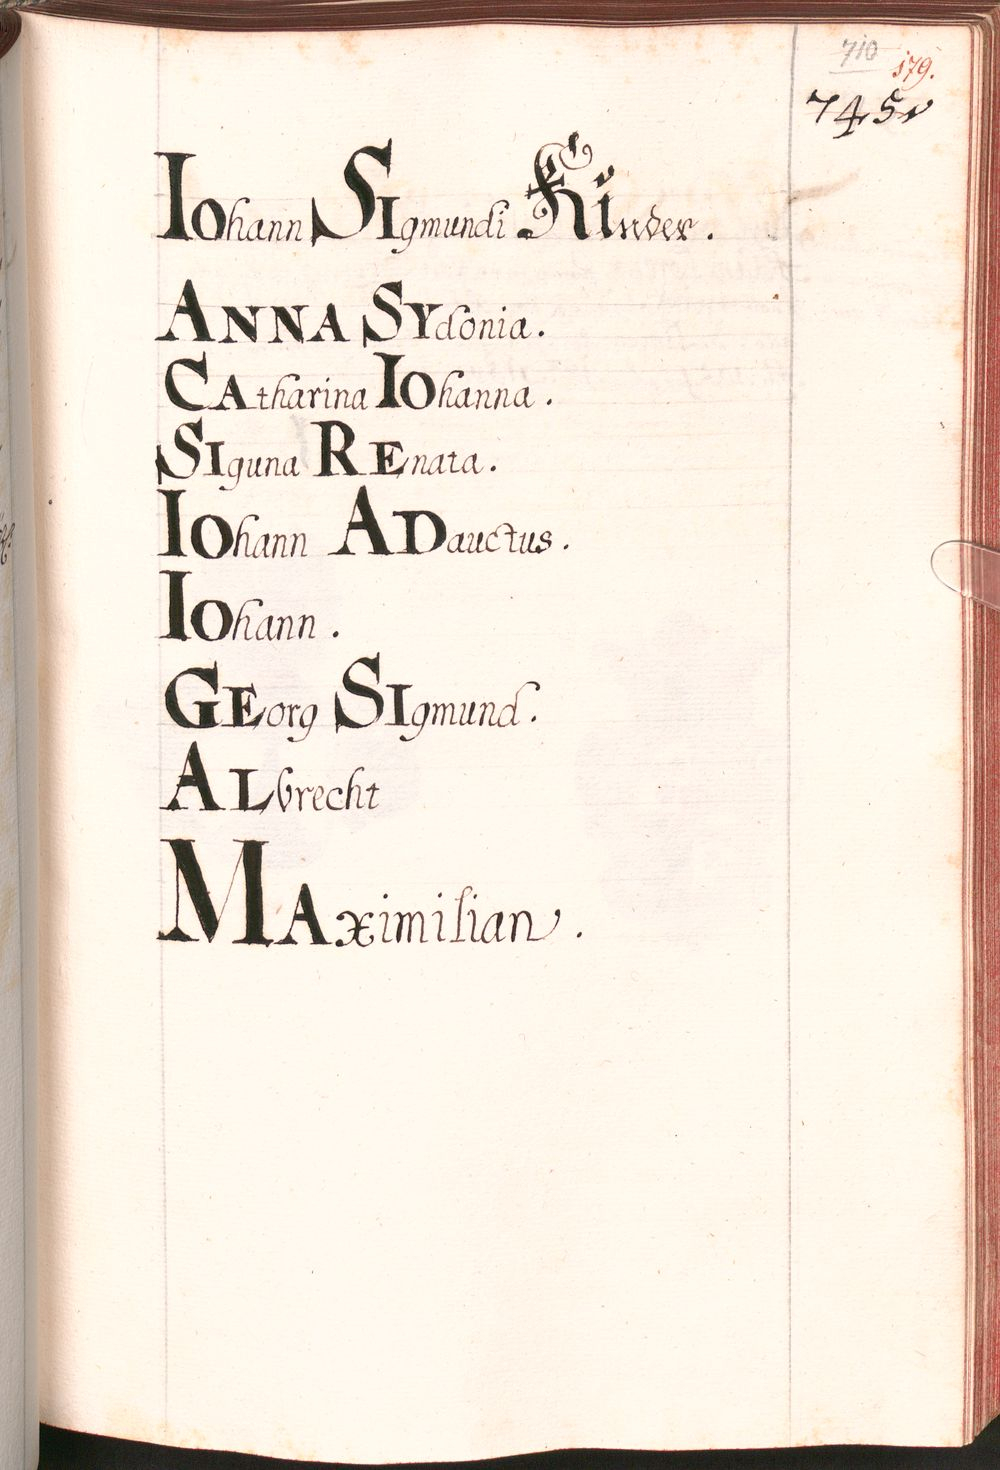 710
179.
745
IOhann SIgmundi KInder.
ANNA SYdonia.
CAtharina IOhanna.
SIguna REnata.
IOhann ADauctus.
IOhann.
GEorg SIgmund.
ALbrecht
MAximilian.